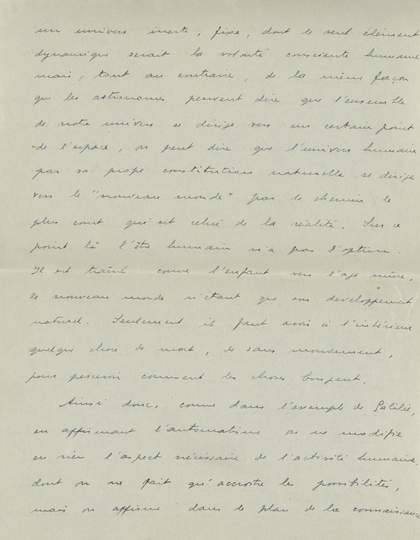 un univers inerte, fixe, dont le seul element
dynamique serait la volonté consciente humaine
mais, tout au contraire, de la même façon
que les astronomes peuvent dire que l'ensemble
de notre univers se dirige vers un certain point
de l'espace, on peut dire que l'univers humain
par sa propre constitution naturelle se dirige
vers le "nouveau monde" par le chemin le
plus court qui est celui de la réalité. Sur ce
point là l'être humain n'a pas d'option.
Il est traîné comme l'enfant vers l'age mûre,
le nouveau monde n'étant que son developpement
naturel. Seulement il faut avoir à l'intérieur
quelque chose de mort, de sans mouvement,
pour percevoir comment les choses bougent.
Ainsi donc, comme dans l'exemple de Galilée,
en affirmant l'automatisme on ne modifie
en rien l'aspect nécessaire de l'activité humaine
dont on ne fait qu'accroître les possibilités,
mais on affirme dans le plan de la connaissance